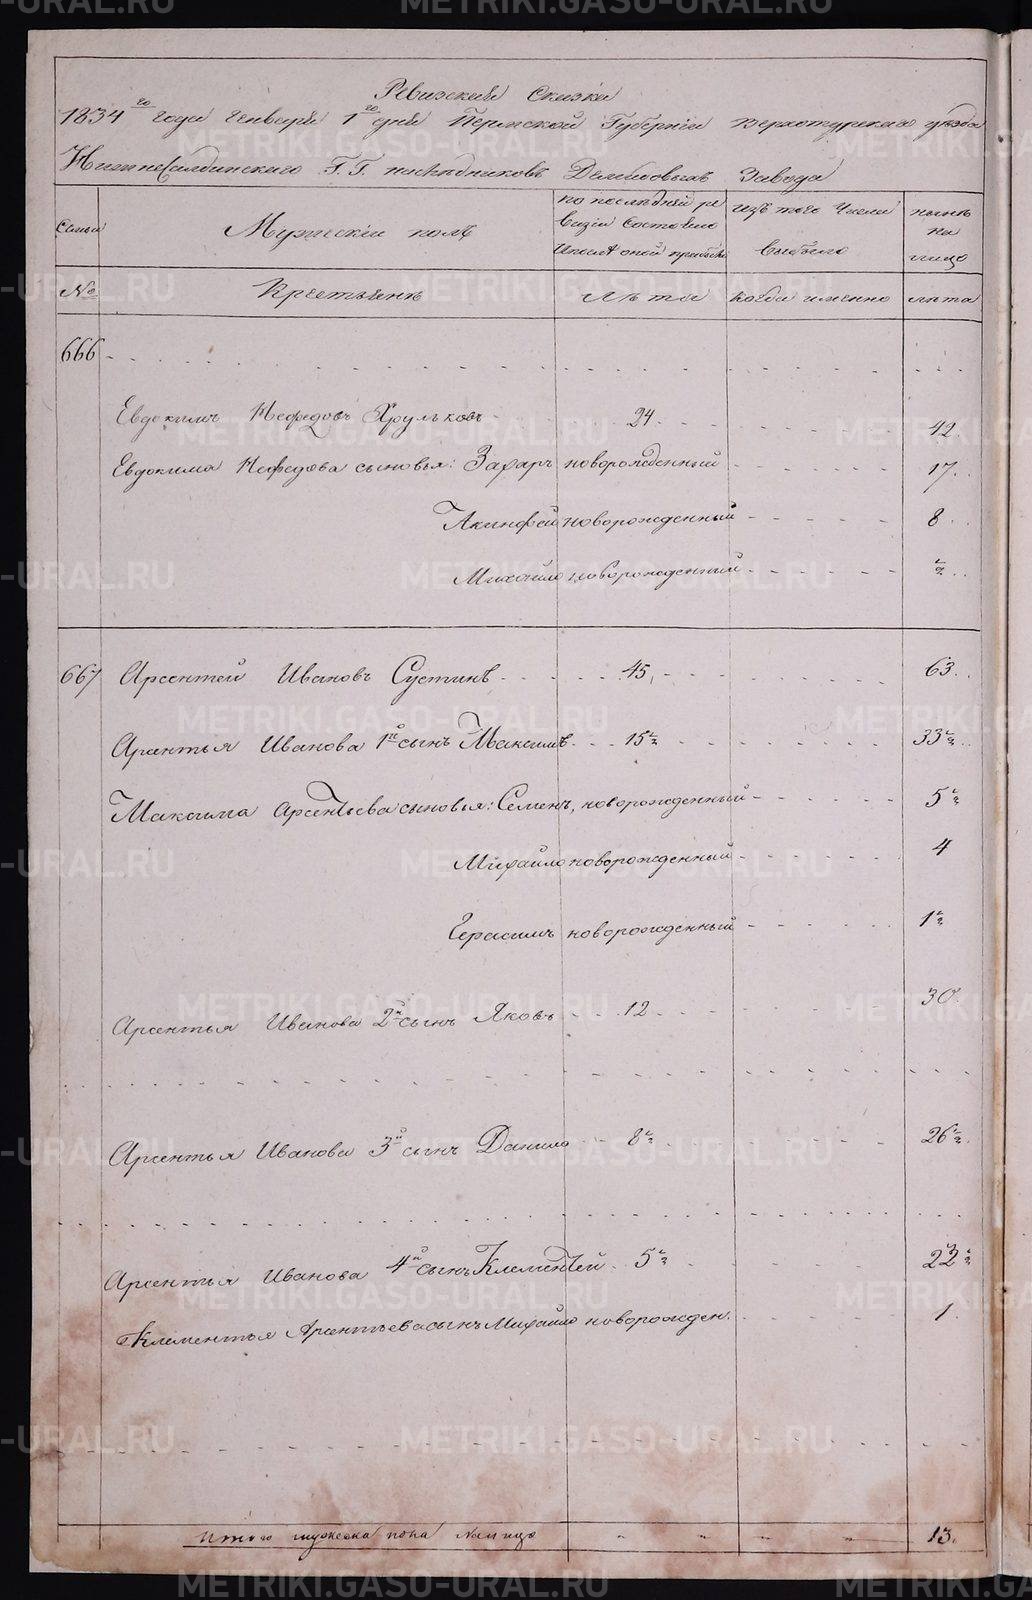 Ревизския Сказки
1834го года Генваря 1го дня Пермской Губернии Верхотурскаго уезда
НижнеСалдинскаго Г.Г. наследниковъ Демидовыхъ Завода
Семьи Мужескiй полъ по последней ре изъ того числа ныне
визiи состояло на
и после оной прибыло выбыло лицо
№ Крестьяне Лета когда именно лета
666
Евдокимъ Нефедовъ Хрульковъ 24. 42.
Евдокима Нефедова сыновья: Захаръ новорожденный 17.
Акинфей новорожденный 8
Михайло новорожденный ½
667 Арсентей Ивановъ Сустинъ 45, 63.
Арсентья Иванова 1й сынъ Максимъ 15½ 33½.
Максима Арсентьева сыновья: Семенъ, новорожденный 5½
Михайло новорожденный 4
Герасимъ новорожденный 1½
Арсентья Иванова 2й сынъ Яковъ 12 30.
Арсентья Иванова 3й сынъ Данило 8½ 26½.
Арсентья Иванова 4й сынъ Клементей 5½ 23½
Клементья Арсентьева сынъ Михайло новорожден. 1.
Итого мужеска пола налицо 13.
METRIKI.GASO-URAL.RU